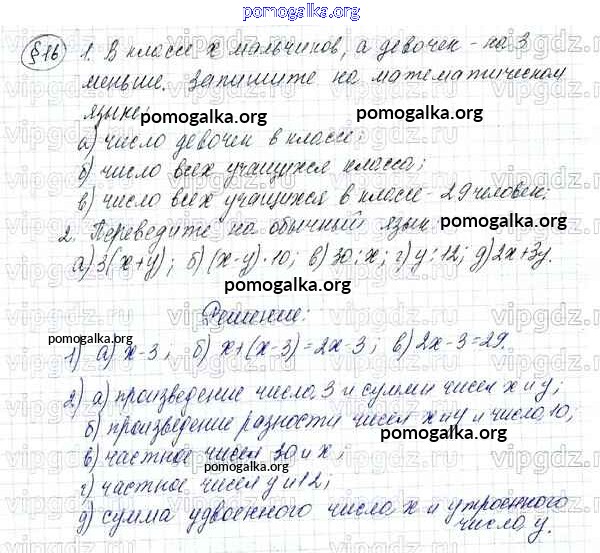 pomogalka.org
§16 1. В классе x мальчиков, а девочек - на 3
меньше. Запишите на математическом
языке:
pomogalka.org
а) число девочек в классе;
б) число всех учащихся класса;
в) число всех учащихся в классе - 29 человек;
2. Переведите на обычный язык: pomogalka.org
а) 3(x+y); б) (x-y)·10; в) 30:x; г) y:12; д) 2x+3y.
pomogalka.org
Решение:
pomogalka.org
1) а) x-3; б) x+(x-3)=2x-3; в) 2x-3=29.
2) а) произведение числа 3 и суммы чисел x и y;
б) произведение разности чисел x и y и числа 10;
pomogalka.org
в) частное чисел 30 и x;
pomogalka.org
г) частное чисел y и 12;
д) сумма удвоенного числа x и утроенного
числа y.
pomogalka.org